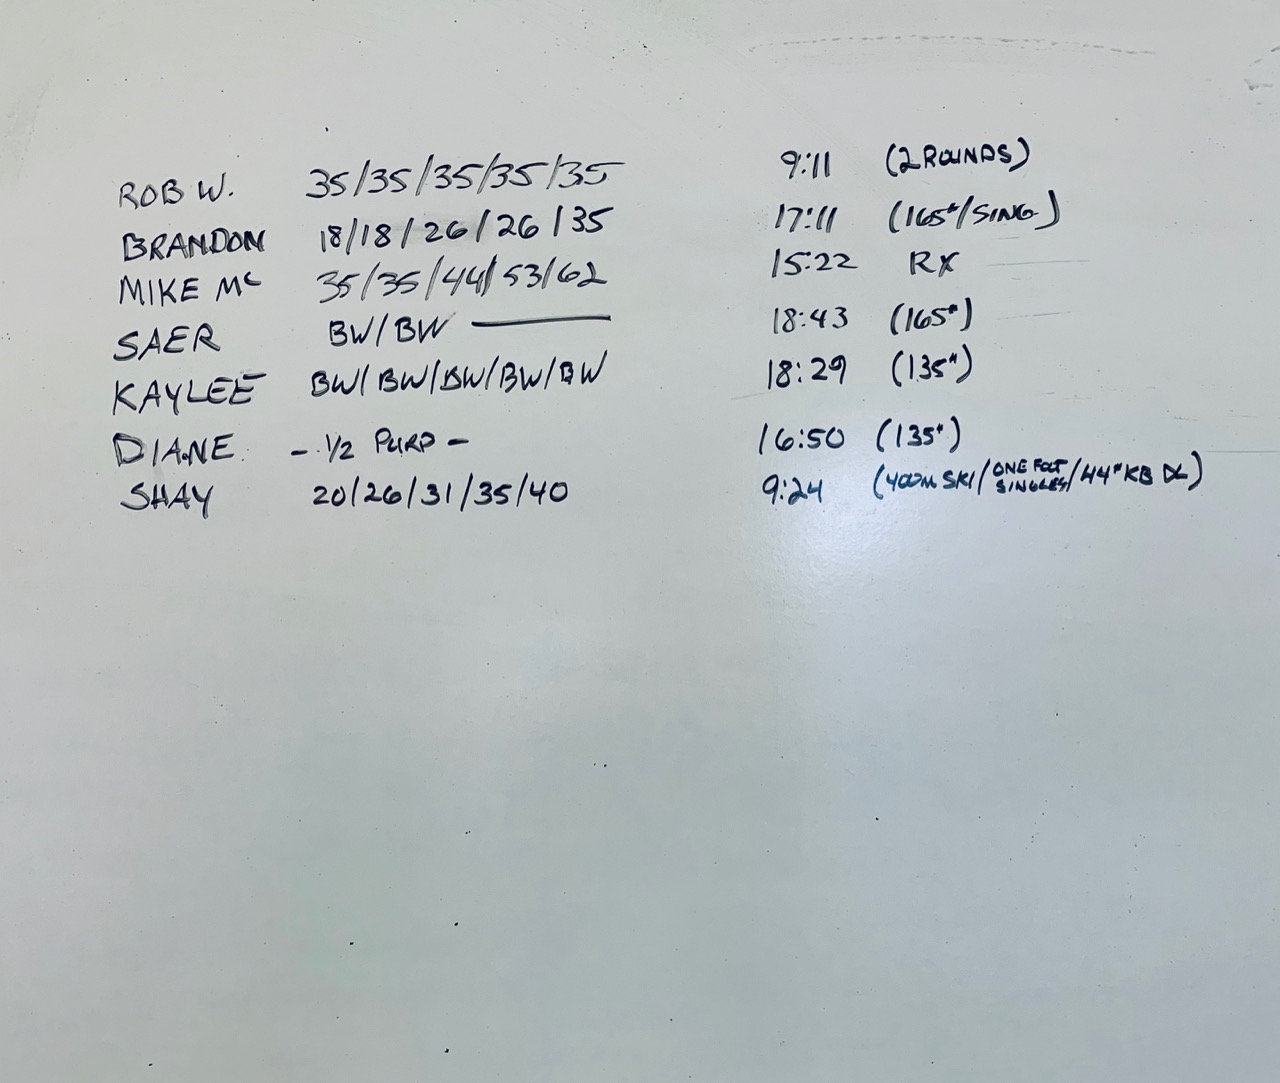 ROB W. 35/35/35/35/35 9:11 (2 ROUNDS)
BRANDON 18/18/26/26/35 17:11 (165#/SING.)
MIKE Mc 35/35/44/53/62 15:22 RX
SAER BW/BW —— 18:43 (165#)
KAYLEE BW/BW/BW/BW/BW 18:29 (135#)
DIANE - 1/2 PURP - 16:50 (135#)
SHAY 20/26/31/35/40 9:24 (400m SKI/ONE FOOT SINGLES/44# KB DL)